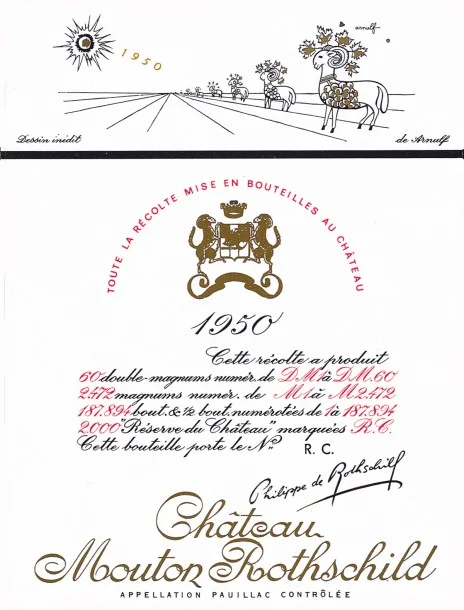 arnulf
1950
Dessin inédit
de Arnulf
TOUTE LA RÉCOLTE MISE EN BOUTEILLES AU CHÂTEAU
1950
Cette récolte a produit
60 double-magnums numér. de D.M.1 à D.M.60
2.472 magnums numér. de M1 à M2.472
187.894 bout. & ½ bout. numérotées de 1 à 187.894
2.000 "Réserve du Château" marquées R.C.
Cette bouteille porte le N.º R. C.
Philippe de Rothschild
Château
Mouton Rothschild
APPELLATION PAUILLAC CONTRÔLÉE